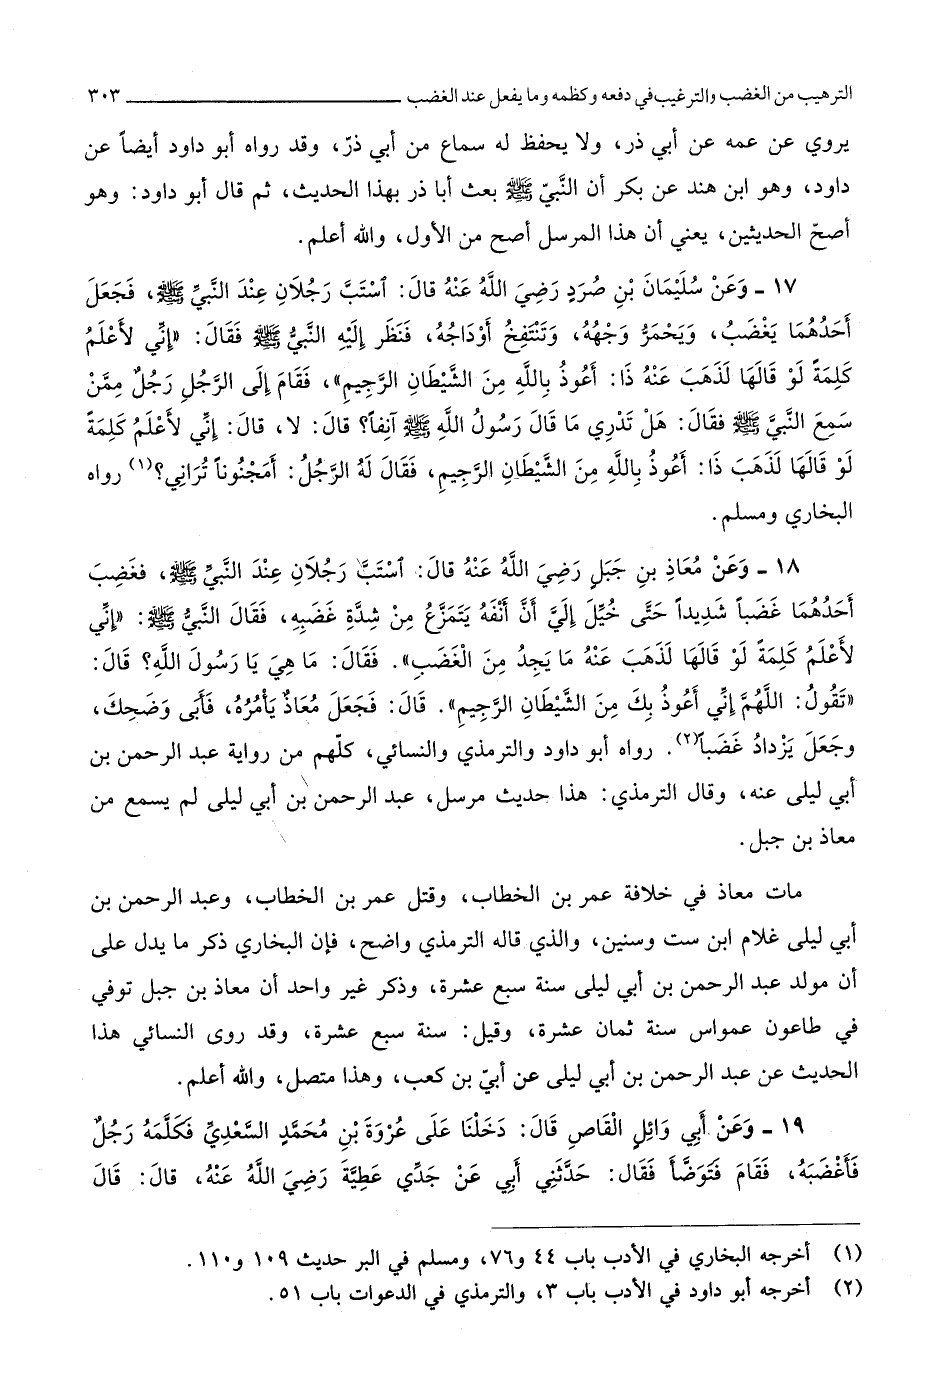 الترهيب من الغضب والترغيب في دفعه وكظمه وما يفعل عند الغضب ــــــــــــــــــــــــ ٣٠٣
يروي عن عمه عن أبي ذر، ولا يحفظ له سماع من أبي ذرّ، وقد رواه أبو داود أيضاً عن
داود، وهو ابن هند عن بكر أن النَّبيّ ﷺ بعث أبا ذر بهذا الحديث، ثم قال أبو داود: وهو
أصحّ الحديثين، يعني أن هذا المرسل أصح من الأول، والله أعلم.
١٧ ـ وَعَنْ سُلَيْمَانَ بْنِ صُرَدٍ رَضِيَ اللَّهُ عَنْهُ قالَ: ٱسْتَبَّ رَجُلَانِ عِنْدَ النَّبيِّ ﷺ، فَجَعَلَ
أَحَدُهُمَا يَغْضَبُ، وَيَحْمَرُّ وَجْهُهُ، وَتَنْتَفِخُ أَوْدَاجُهُ، فَنَظَر إِلَيْهِ النَّبيُّ ﷺ فَقَالَ: «إِنِّي لأَعْلَمُ
كَلِمَةً لَوْ قَالَهَا لَذَهَبَ عَنْهُ ذَا: أَعُوذُ بِاللَّهِ مِنَ الشَّيْطَانِ الرَّجِيمِ»، فَقَامَ إِلَى الرَّجُلِ رَجُلٌ مِمَّنْ
سَمِعَ النَّبيَّ ﷺ فقَالَ: هَلْ تَدْرِي مَا قَالَ رَسُولُ اللَّهِ ﷺ آنِفاً؟ قالَ: لا، قالَ: إِنِّي لأَعْلَمُ كَلِمَةً
لَوْ قَالَهَا لَذَهَبَ ذَا: أَعُوذُ بِاللَّهِ مِنَ الشَّيْطَانِ الرَّجِيمِ، فَقَالَ لَهُ الرَّجُلُ: أَمَجْنُوناً تُرَانِي؟(١) رواه
البخاري ومسلم.
١٨ ـ وَعَنْ مُعَاذِ بنِ جَبَلٍ رَضِيَ اللَّهُ عَنْهُ قالَ: ٱسْتَبَّ رَجُلَانِ عِنْدَ النَّبيِّ ﷺ، فغَضِبَ
أَحَدُهُمَا غَضَباً شَدِيداً حَتَّى خُيِّلَ إِلَيَّ أَنَّ أَنْفَهُ يَتَمَزَّعُ مِنْ شِدَّةِ غَضَبِهِ، فَقَالَ النَّبيُّ ﷺ: «إِنِّي
لأَعْلَمُ كَلِمَةً لَوْ قَالَهَا لَذَهَبَ عَنْهُ مَا يَجِدُ مِنَ الْغَضَبِ». فَقَالَ: مَا هِيَ يَا رَسُولَ اللَّهِ؟ قَالَ:
«تَقُولُ: اللَّهُمَّ إِنِّي أَعُوذُ بِكَ مِنَ الشَّيْطَانِ الرَّجِيمِ». قَالَ: فَجَعَلَ مُعَاذٌ يَأْمُرُهُ، فَأَبَى وَضَحِكَ،
وجَعَلَ يَزْدادُ غَضَباً(٢). رواه أبو داود والترمذي والنسائي، كلّهم من رواية عبد الرحمن بن
أبي ليلى عنه، وقال الترمذي: هذا حديث مرسل، عبد الرحمن بن أبي ليلى لم يسمع من
معاذ بن جبل.
مات معاذ في خلافة عمر بن الخطاب، وقتل عمر بن الخطاب، وعبد الرحمن بن
أبي ليلى غلام ابن ست وسنين، والذي قاله الترمذي واضح، فإن البخاري ذكر ما يدل على
أن مولد عبد الرحمن بن أبي ليلى سنة سبع عشرة، وذكر غير واحد أن معاذ بن جبل توفي
في طاعون عمواس سنة ثمان عشرة، وقيل: سنة سبع عشرة، وقد روى النسائي هذا
الحديث عن عبد الرحمن بن أبي ليلى عن أبيّ بن كعب، وهذا متصل، والله أعلم.
١٩ ـ وَعَنْ أَبِي وَائِلٍ الْقَاصِ قَالَ: دَخَلْنَا عَلَى عُرْوَةَ بْنِ مُحَمَّدٍ السَّعْدِيِّ فَكَلَّمَهُ رَجُلٌ
فَأَغْضَبَهُ، فَقَامَ فَتَوَضَّأَ فَقَال: حَدَّثَنِي أَبِي عَنْ جَدِّي عَطِيَّةَ رَضِيَ اللَّهُ عَنْهُ، قالَ: قَالَ
(١) أخرجه البخاري في الأدب باب ٤٤ و٧٦، ومسلم في البر حديث ١٠٩ و١١٠.
(٢) أخرجه أبو داود في الأدب باب ٣، والترمذي في الدعوات باب ٥١.